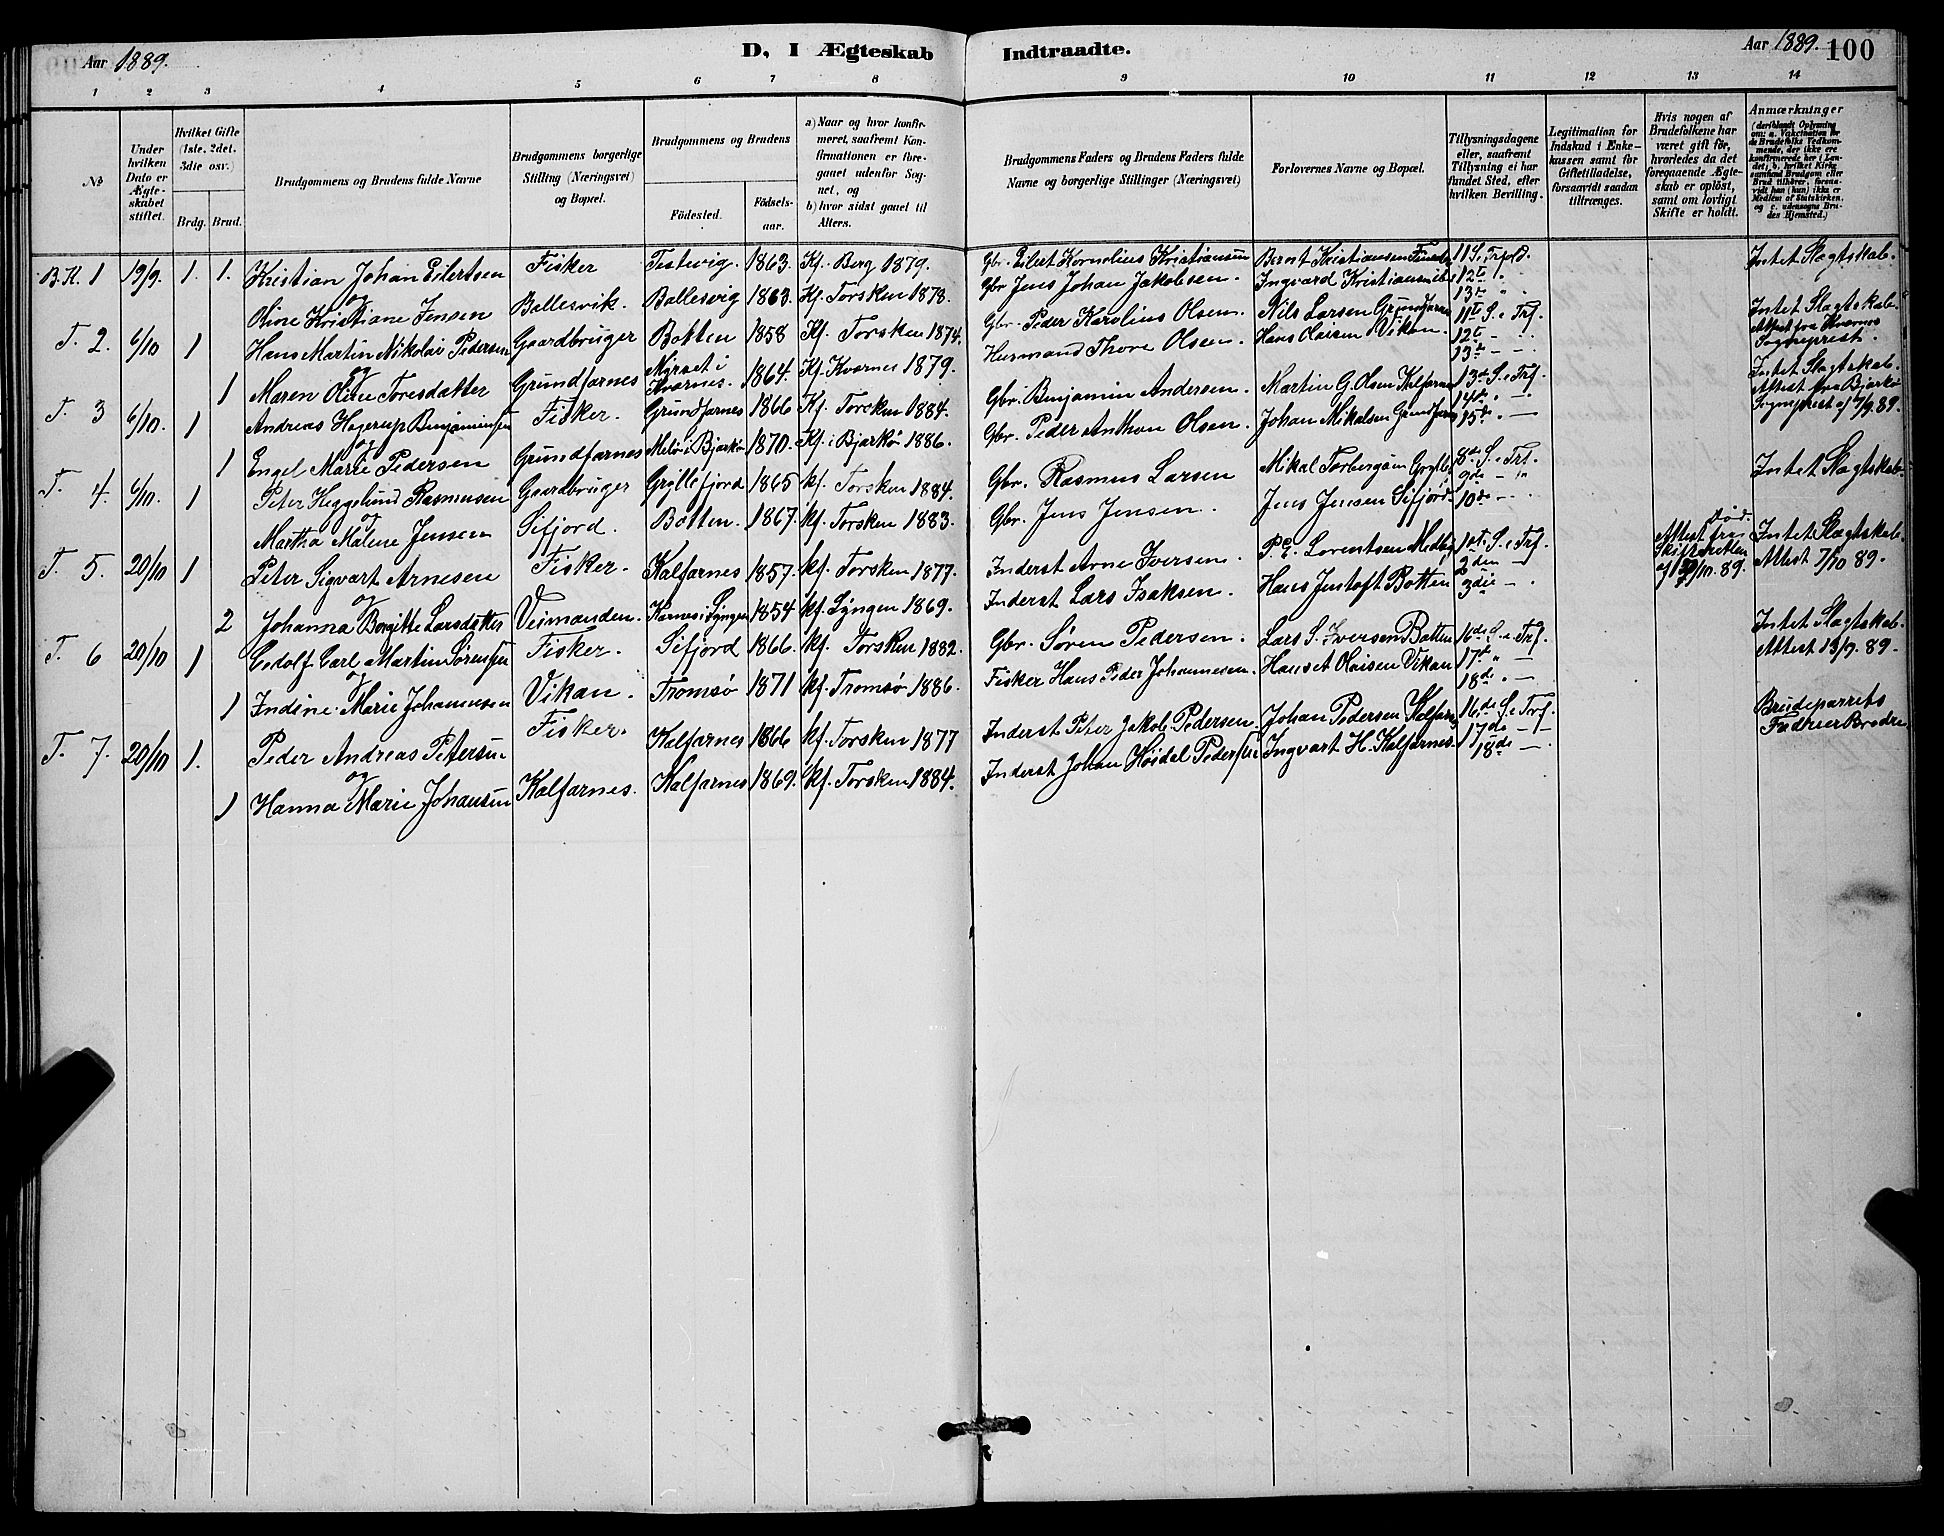 Aar 1889.
D, I Ægteskab Indtraadte.
Aar 1889. 100
1 2 3 4 5 6 7 8 9 10 11 12 13 14
No
Under hvilken Dato er Ægteskabet stiftet.
Hvilket Gifte (1ste, 2det, 3dte osv.)
Brdg. Brud.
Brudgommens og Brudens fulde Navne
Brudgommens borgerlige Stilling (Næringsvei) og Bopæl.
Brudgommens og Brudens
Födested. Födselsaar.
a) Naar og hvor konfirmeret, saafremt Konfirmationen er foregaaet udenfor Sognet, og
b) hvor sidst gaaet til Alters.
Brudgommens Faders og Brudens Faders fulde Navne og borgerlige Stillinger (Næringsvei)
Forlovernes Navne og Bopæl.
Tillysningsdagene eller, saafremt Tillysning ei har fundet Sted, efter hvilken Bevilling.
Legitimation for Indskud i Enkekassen samt for Giftetilladelse, forsaavidt saadan tiltrænges.
Hvis nogen af Brudefolkene har været gift för, hvorledes da det foregaaende Ægteskab er oplöst, samt om lovligt Skifte er holdt.
Anmærkninger (deriblandt Oplysning om: a. Vakcination for de Brudefolks Vedkommende, der ikke ere konfirmerede her i Landet; b. hvilket Kirkesamfund Brudgom eller Brud tilhörer, forsaavidt han (hun) ikke er Medlem af Statskirken, og c. udensogns Brudes Hjemsted.)
B.K. 1 19/9. 1. 1. Kristian Johan Eilertsen Fisker Testevig. 1863. Kf. Berg 1879. Gbr. Eilert Kornelius Kristiansen Bernt Kristiansen 11 S. e Trfold. Intet Slægtskab.
og
Oline Kristiane Jensen Ballesvik. Ballesvig 1863. Kf. Torsken 1878. Gbr. Jens Johan Jakobsen. Ingvard Kristiansen 12te " 13de "
T. 2. 6/10 1 Hans Martin Nikolai Pedersen Gaardbruger Botten 1858 Kf. Torsken 1874. Gbr. Peder Karolius Olsen. Nils Larsen Grundfarnes 11te S. e Trf. Intet Slægtskab.
og
1 Maren Oline Toresdatter Grundfarnes Myrset i Kværnes. 1864. Kf. Kvernes 1879. Husmand Thore Olsen. Hans Olaisen Vikan. 12te - - 13de - - Attest fra Kvernes Sogneprest.
T. 3 6/10. 1 Andreas Hagerup Benjaminsen Fisker. Grundfarnes 1866 Kf. Torsken 1884. Gbr. Benjamin Andersen. Martin G. Olsen Kalfarnes 13de S. e Trf. 14de " - Intet Slægtskab.
og
1 Engel Marie Pedersen Grundfarnes Melö i Bjarkö 1870. Kf. i Bjarkö 1886. Gbr. Peder Anthon Olsen. Johan Mikalsen Grundfarnes 15de " - Attest fra Bjarkö Sogneprest af 7/9 89.
T. 4. 6/10. 1 Peter Heggelund Rasmusen Gaardbruger Gryllefjord 1865 kf. Torsken 1884. Gbr. Rasmus Larsen Mikal Torbergsen Gryllef. 8de S. e Trf. 9de - " Intet Slægtskab.
og
Martha Malene Jensen Sifjord. Botten. 1867. kf. Torsken 1883. Gbr. Jens Jensen. Jens Jensen Sifjord. 10de - -
T. 5. 20/10 1 Peter Sigvart Arnesen Fisker. Kalfarnes 1857. kf. Torsken 1877. Inderst Arne Iversen P.E. Lorentsen Medby 1ste S. e Trf. Død. Attest fra Skifteretten af /10. 89. Intet Slægtskab. Attest 7/10 89.
og
2 Johanna Bergitte Larsdatter Veimanden. Karnes i Lyngen 1854 kf. Lyngen 1869. Inderst Lars Isaksen. Hans Jentoft Botten 2den - 3die - .
T. 6 20/10 1 Edolf Carl Martin Sørensen Fisker. Sifjord 1866. kf. Torsken 1882. Gbr. Søren Pedersen. Lars S. Iversen Botten 16de S. e Trf. Intet Slægtskab. Attest 13/9. 89.
og
1 Indine Marie Johannesen Vikan. Tromsø 1871 kf. Tromsø 1886. Fisker Hans Peder Johannesen. Olaisen Vikan 17de " - 18de " -
T. 7. 20/10 1. Peder Andreas Petersen Fisker. Kalfarnes 1866 kf. Torsken 1877 Inderst Peter Jakob Pedersen. Johan Pedersen Kalfarnes 16de S. e Trf. Brudeparrets Fædre er Brødre.
og
1 Hanna Marie Johansen Kalfarnes. Kalfarnes 1869. kf. Torsken 1884. Inderst Johan Høidal Pedersen Ingvart H. Kalfarnes. 17de - - 18de - .